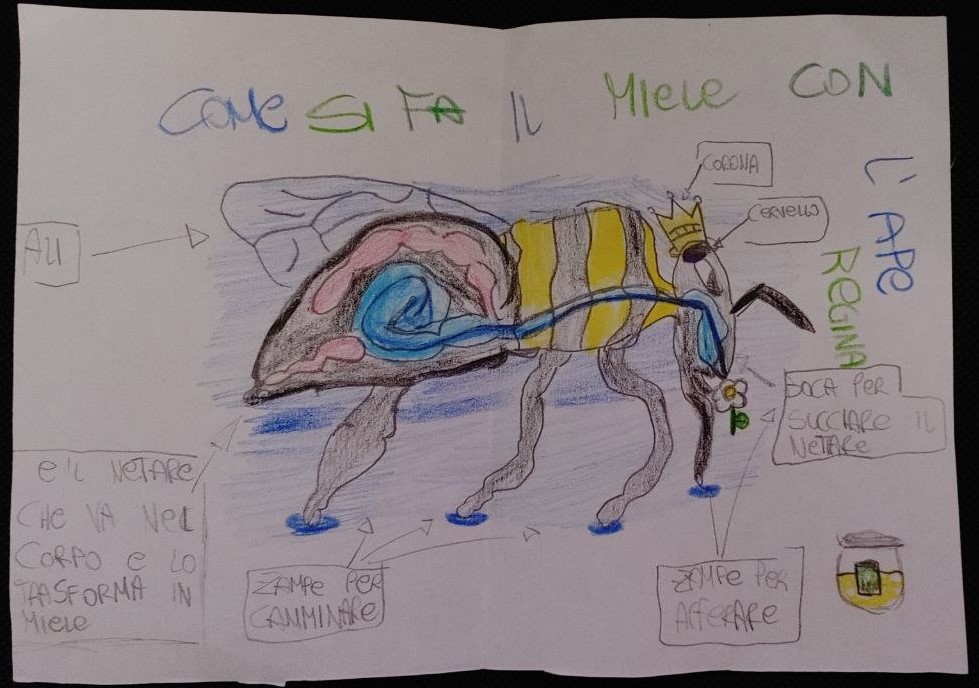 COME SI FA IL MIELE CON
L'APE
REGINA
CORONA
CERVELLO
ALI
BOCA PER
SUCCIARE IL
NETARE
E IL NETARE
CHE VA NEL
CORPO E LO
TRASFORMA IN
MIELE
ZAMPE PER
CAMMINARE
ZAMPE PER
AFFERARE